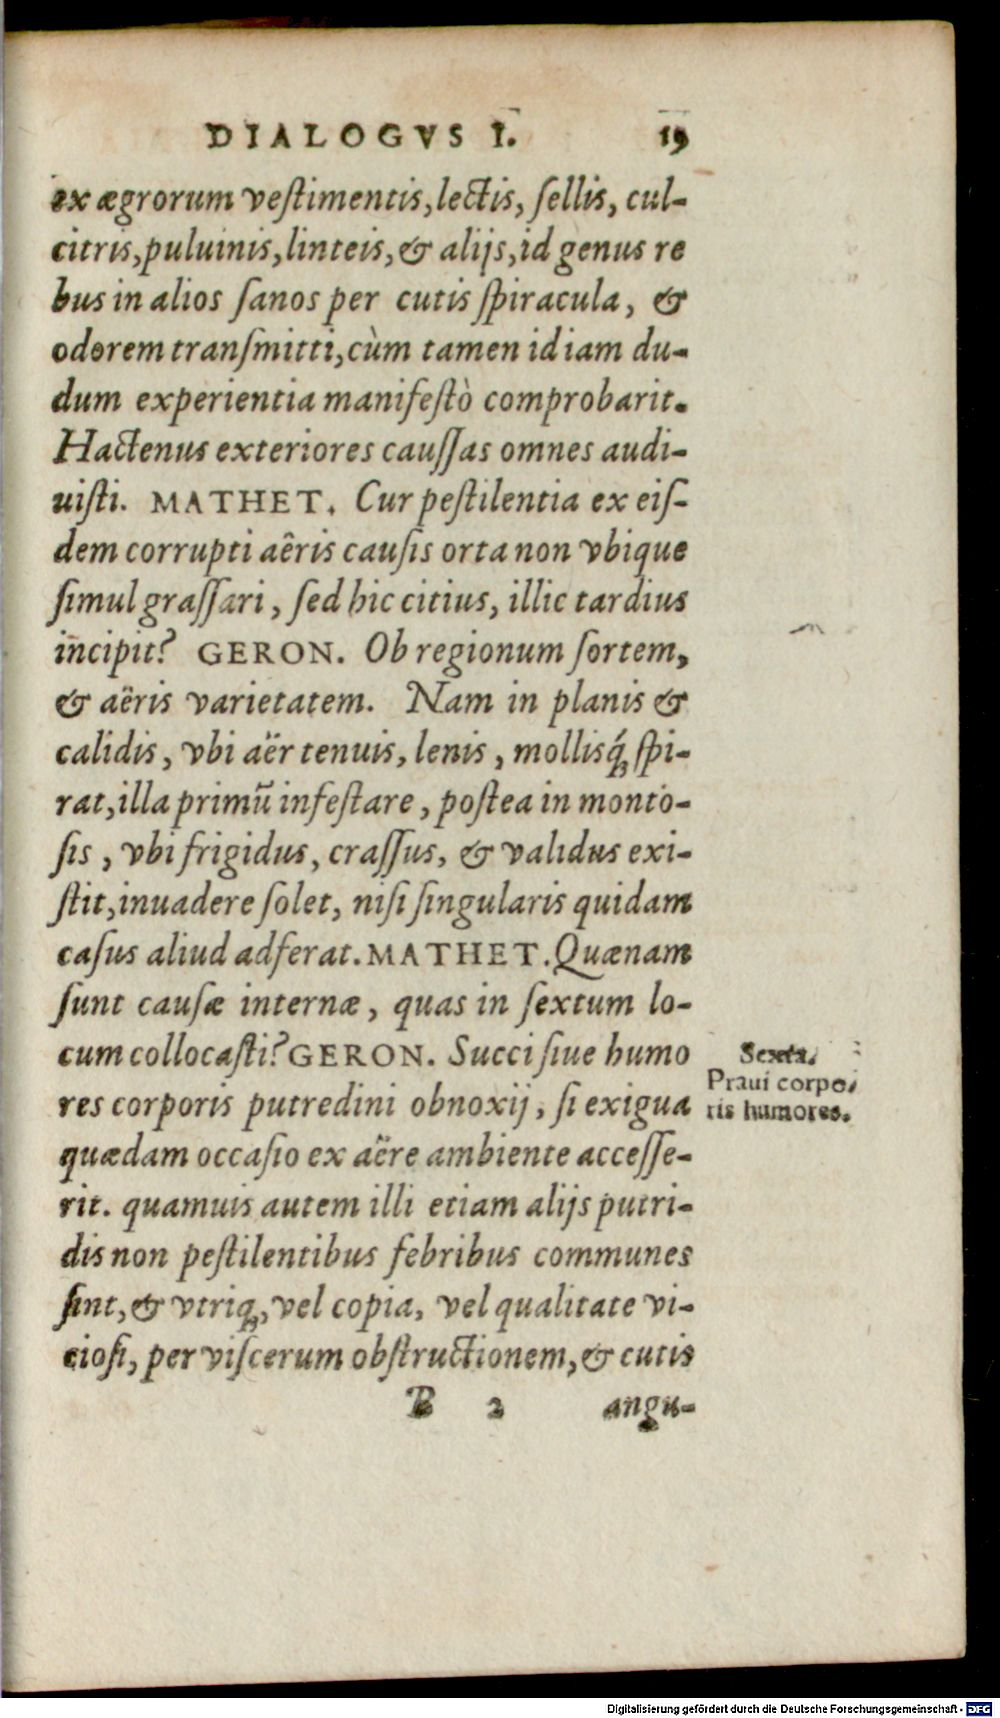 DIALOGVS I. 19
ex ægrorum veſtimentis, lectis, ſellis, cul-
citris, puluinis, linteis, & alijs, id genus re
bus in alios ſanos per cutis ſpiracula, &
odorem tranſmitti, cùm tamen id iam du-
dum experientia manifeſtò comprobarit.
Hactenus exteriores cauſſas omnes audi-
uiſti. MATHET. Cur peſtilentia ex eiſ-
dem corrupti aêris cauſis orta non vbique
ſimul graſſari, ſed hic citius, illic tardius
incipit? GERON. Ob regionum ſortem,
& aëris varietatem. Nam in planis &
calidis, vbi aër tenuis, lenis, mollisq́ꝫ ſpi-
rat, illa primũ infeſtare, poſtea in monto-
ſis, vbi frigidus, craſſus, & validus exi-
ſtit, inuadere ſolet, niſi ſingularis quidam
caſus aliud adferat. MATHET. Quænam
ſunt cauſæ internæ, quas in ſextum lo-
cum collocaſti? GERON. Succi ſiue humo
res corporis putredini obnoxij, ſi exigua
quædam occaſio ex aëre ambiente acceſſe-
rit. quamuis autem illi etiam alijs putri-
dis non peſtilentibus febribus communes
ſint, & vtriqꝫ, vel copia, vel qualitate vi-
cioſi, per viſcerum obſtructionem, & cutis
B 2 angu-
Sexta.
Praui corpo-
ris humores.
Digitalisierung gefördert durch die Deutsche Forschungsgemeinschaft - DFG